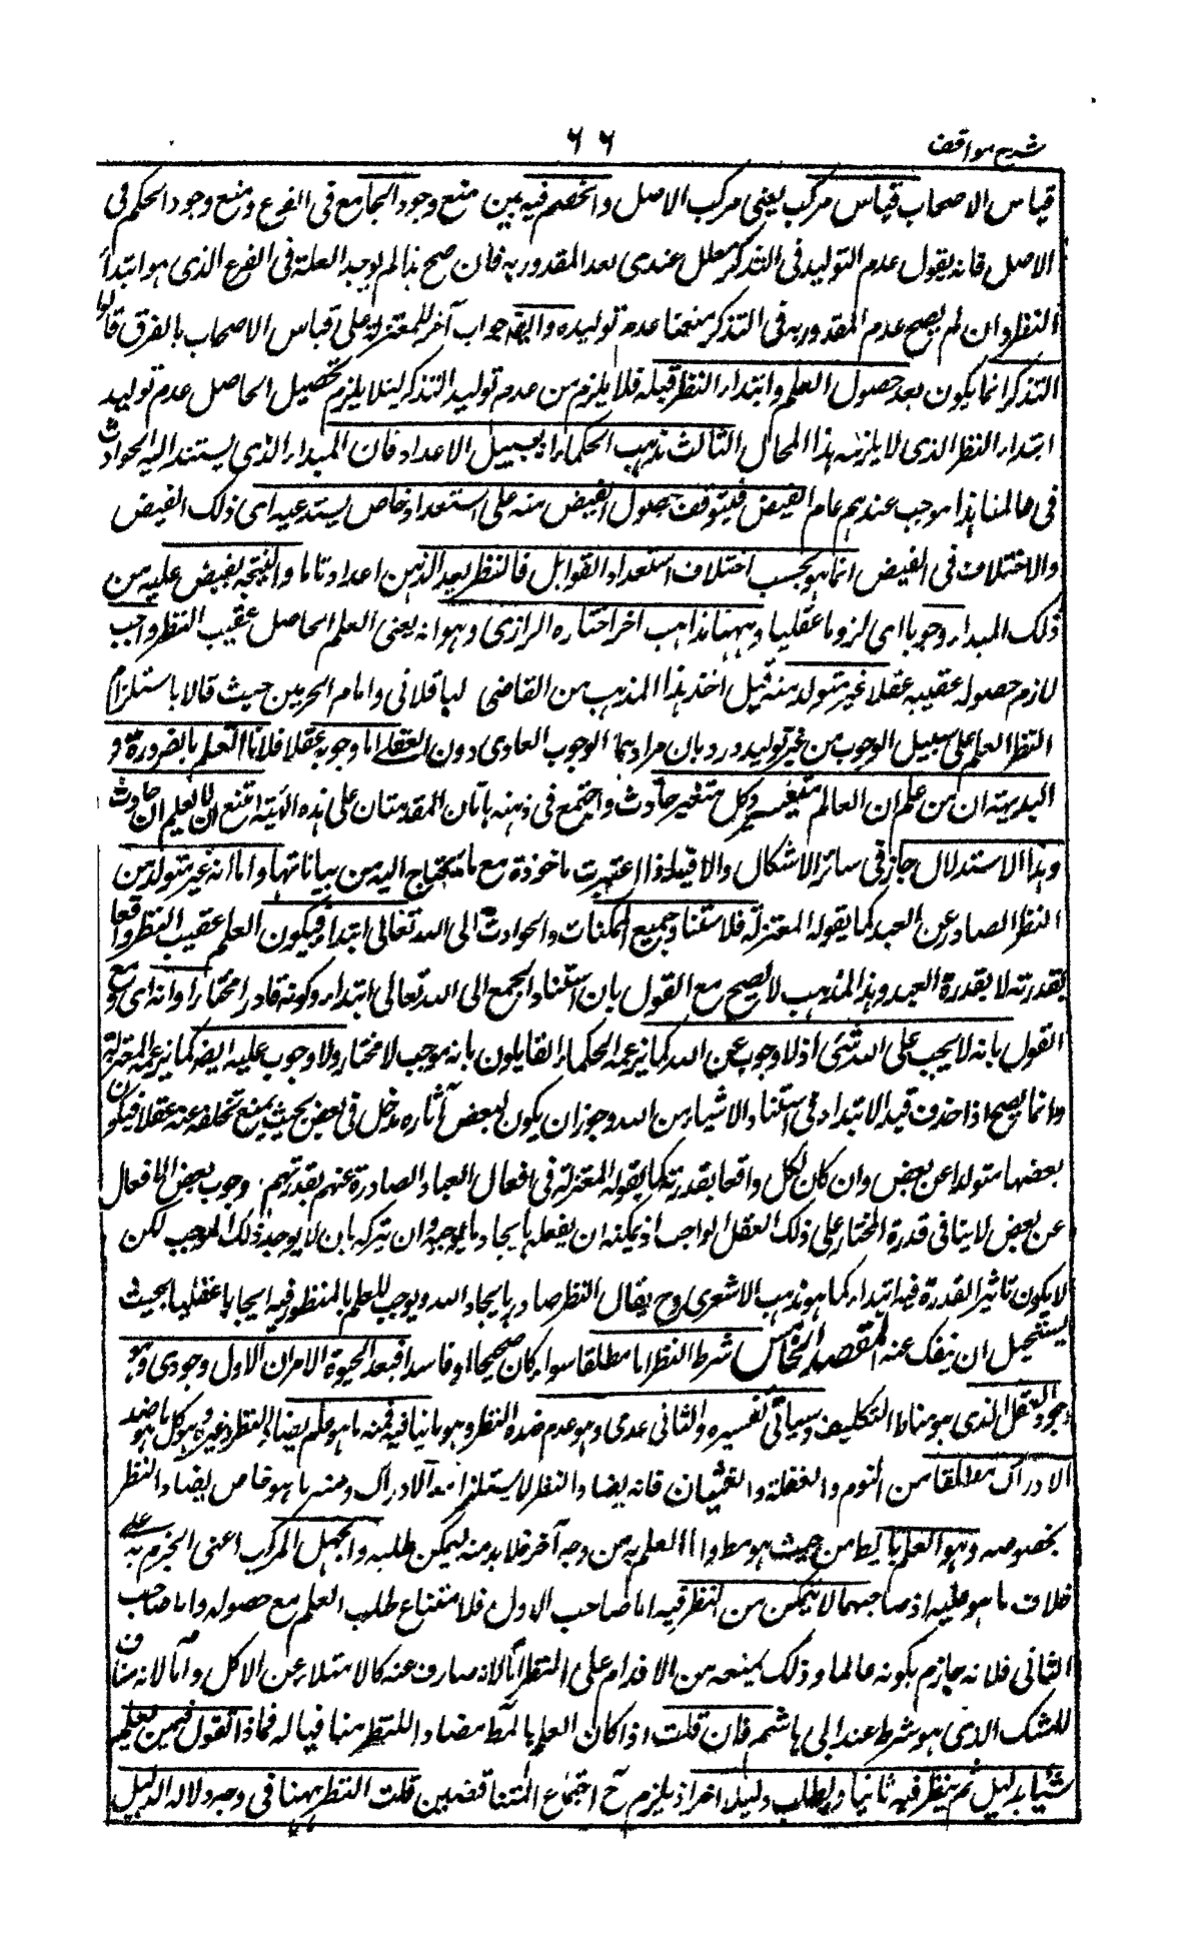 شرح مواقف
٦٦
قياس الاصحاب قياس مركب يعنى مركب الاصل والخصم فيه بين منع وجود الجامع فى الفرع ومنع وجود الحكم فى
الاصل فانه يقول عدم التوليد فى التذكر معلل عندى بعد المقدورية فان صح هذا لم يوجد العلة فى الفرع الذى هو ابتداء
النظر وان لم يصح عدم المقدورية فى التذكر منعنا عدم توليده والفرق جواب آخر للمعتزلة على قياس الاصحاب بالفرق قالوا
التذكر انما يكون بعد حصول العلم وابتداء النظر قبله فلا يلزم من عدم توليد التذكر لئلا يلزم تحصيل الحاصل عدم توليد
ابتداء النظر الذى لا يلزمه هذا المحال الثالث مذهب الحكماء انه بسبيل الاعداد فان المبداء الذى يستند اليه الحوادث
فى عالمنا هذا موجب عندهم عام الفيض فيتوقف حصول الفيض منه على استعداد خاص يستدعيه اى ذلك الفيض
والاختلاف فى الفيض انما هو بحسب اختلاف استعداد القوابل فالنظر يعد الذهن اعدادا تاما والنتيجة يفيض عليه من
ذلك المبداء وجوبا اى لزوما عقليا وههنا مذاهب اخر اختاره الرازى وهو انه يعنى العلم الحاصل عقيب النظر واجب
لازم حصوله عقيبه عقلا غير متولد منه قيل اخذ هذا المذهب من القاضى لباقلانى وامام الحرمين حيث قالا باستلزام
النظر العلم على سبيل الوجوب من غير توليد ورد بان مرادهما الوجوب العادى دون العقلى اما وجوبه عقلا فلانا نعلم بالضرورة و
البديهة ان من علم ان العالم متغير وكل متغير حادث واجتمع فى ذهنه هاتان المقدمتان على هذه الهيئة امتنع ان لا يعلم ان حادث
وهذا الاستدلال جاز فى سائر الاشكال والاقيسة اذا اعتبرت ماخوذة مع ما تحتاج اليه من بياناتها واما انه غير متولد من
النظر الصادر عن العبد كما يقوله المعتزلة فلاستناد جميع الممكنات والحوادث الى الله تعالى ابتداء فيكون العلم عقيب النظر واقعا
بقدرته لا بقدرة العبد وهذا المذهب لا يصح مع القول بان استناد الجمع الى الله تعالى ابتداء وكونه قادرا مختارا وانه اى ومع
القول بانه لا يجب على الله شئ اذ لا وجوب عن الله كما يزعمه الحكماء القايلون بانه موجب لا مختار ولا وجوب عليه ايضه كما يزعمه المعتزلة
وانما يصح اذا حذف قيد الابتداء فى استناد الاشياء من الله وجوز ان يكون لبعض آثاره مدخل فى بعض بحيث يمتنع تخلفه عنه عقلا فيكون
بعضها متولدا عن بعض وان كان الكل واقعا بقدرته كما يقوله المعتزلة فى افعال العباد الصادرة عنهم بقدرتهم. وجوب بعض الافعال
عن بعض لا ينافى قدرة المختار على ذلك العقل الواجب اذ يمكنه ان يفعله بايجاد ما يوجبه وان يتركه بان لا يوجد ذلك الموجب لكن
لا يكون تاثير القدرة فيه ابتداء كما هو مذهب الاشعرى وح يقال النظر صادر بايجاد الله ويوجب للعلم بالمنظور فيه ايجابا عقليا بحيث
يستحيل ان ينفك عنه المقصد الخامس شرط النظر اما مطلقا سواء كان صحيحا او فاسدا فبعد الحيوة الامران الاول وجودى وهو
وجود العقل الذى هو مناط التكليف وسياتى تفسيره والثانى عدمى وهو عدم ضده النظر وهو ما ينافيه فمنه ما هو عام يضاد النظر وغيره وهو كل ما هو ضد
الادراك مطلقا من النوم والغفلة والغشيان فانه يضاد النظر لاستلزامه الادراك ومنه ما هو خاص يضاد النظر
بخصوصه وهو العلم بالمط من حيث هو مط واما العلم به من وجه آخر فلا بد منه ليمكن طلبه والجهل المركب اعنى الجزم به على
خلاف ما هو عليه اذ صاحبهما لا يتمكن من النظر فيه اما صاحب الاول فلامتناع طلب العلم مع حصوله واما صاحب
الثانى فلانه جازم بكونه عالما وذلك يمنعه من الاقدام على النظر اما لانه صارف عنه كالامتلاء عن الاكل واما لانه مناف
للشك الذى هو شرط عند ابى هاشم فان قلت اذا كان العلم بالمط مضادا للنظر منافيا له فماذا تقول فيمن يعلم
شيئا بدليل ثم ينظر فيه ثانيا ويطلب دليلا اخر اذ يلزم ح اجتماع المتناقضين قلت النظر ههنا فى وجه دلالة الدليل